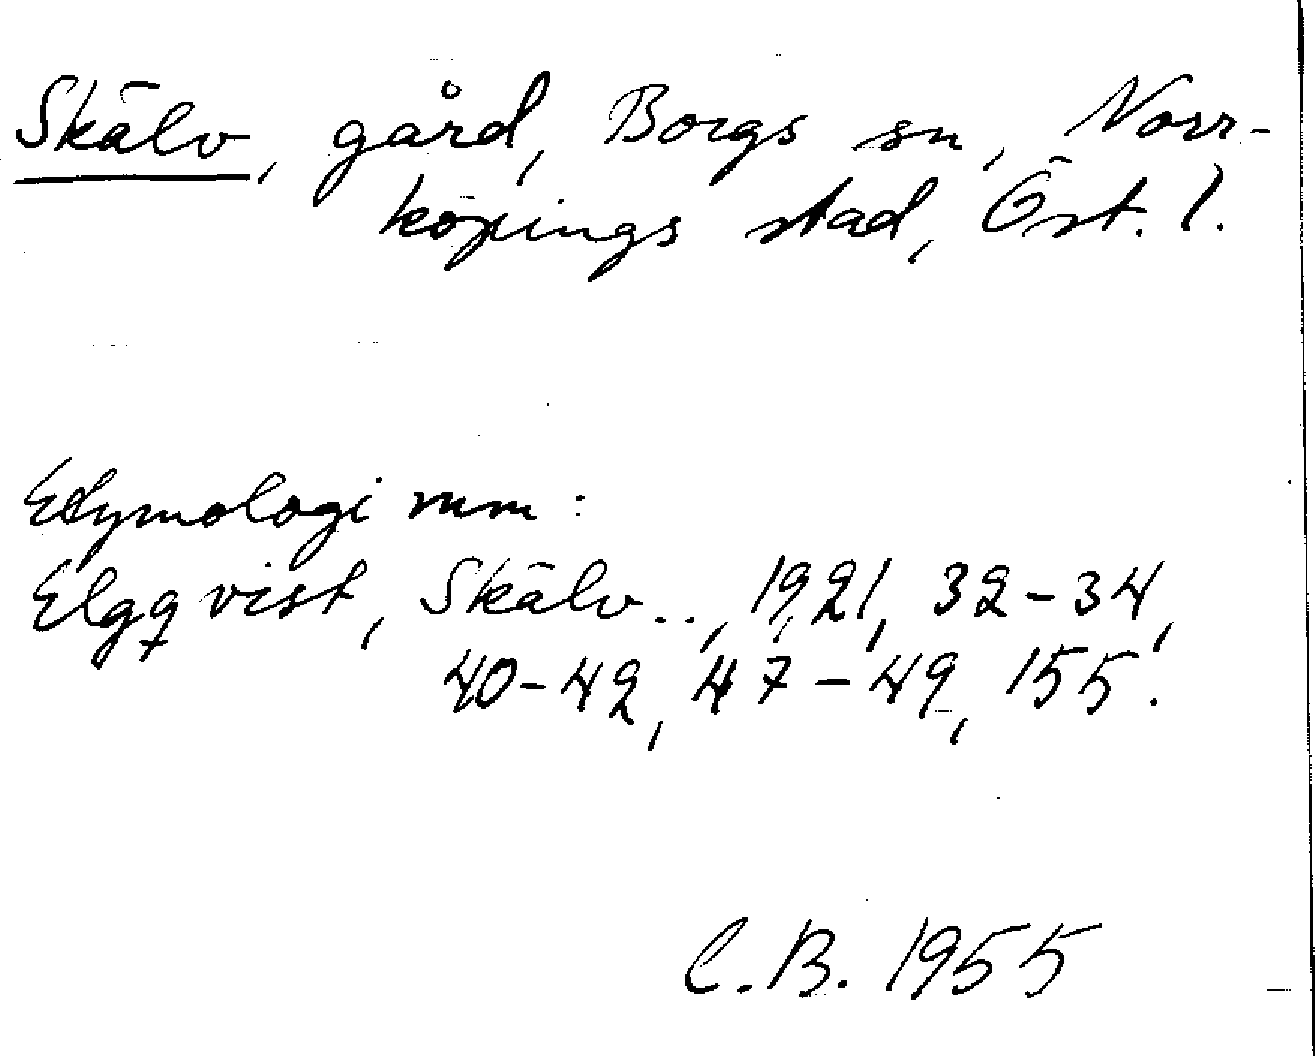 Skälv, gård, Borgs sn, Norr-
köpings stad, Öst. l.
Etymologi mm:
Elgqvist, Skälv.., 1921, 32-34,
40-42, 47-49, 155.
C.B. 1955